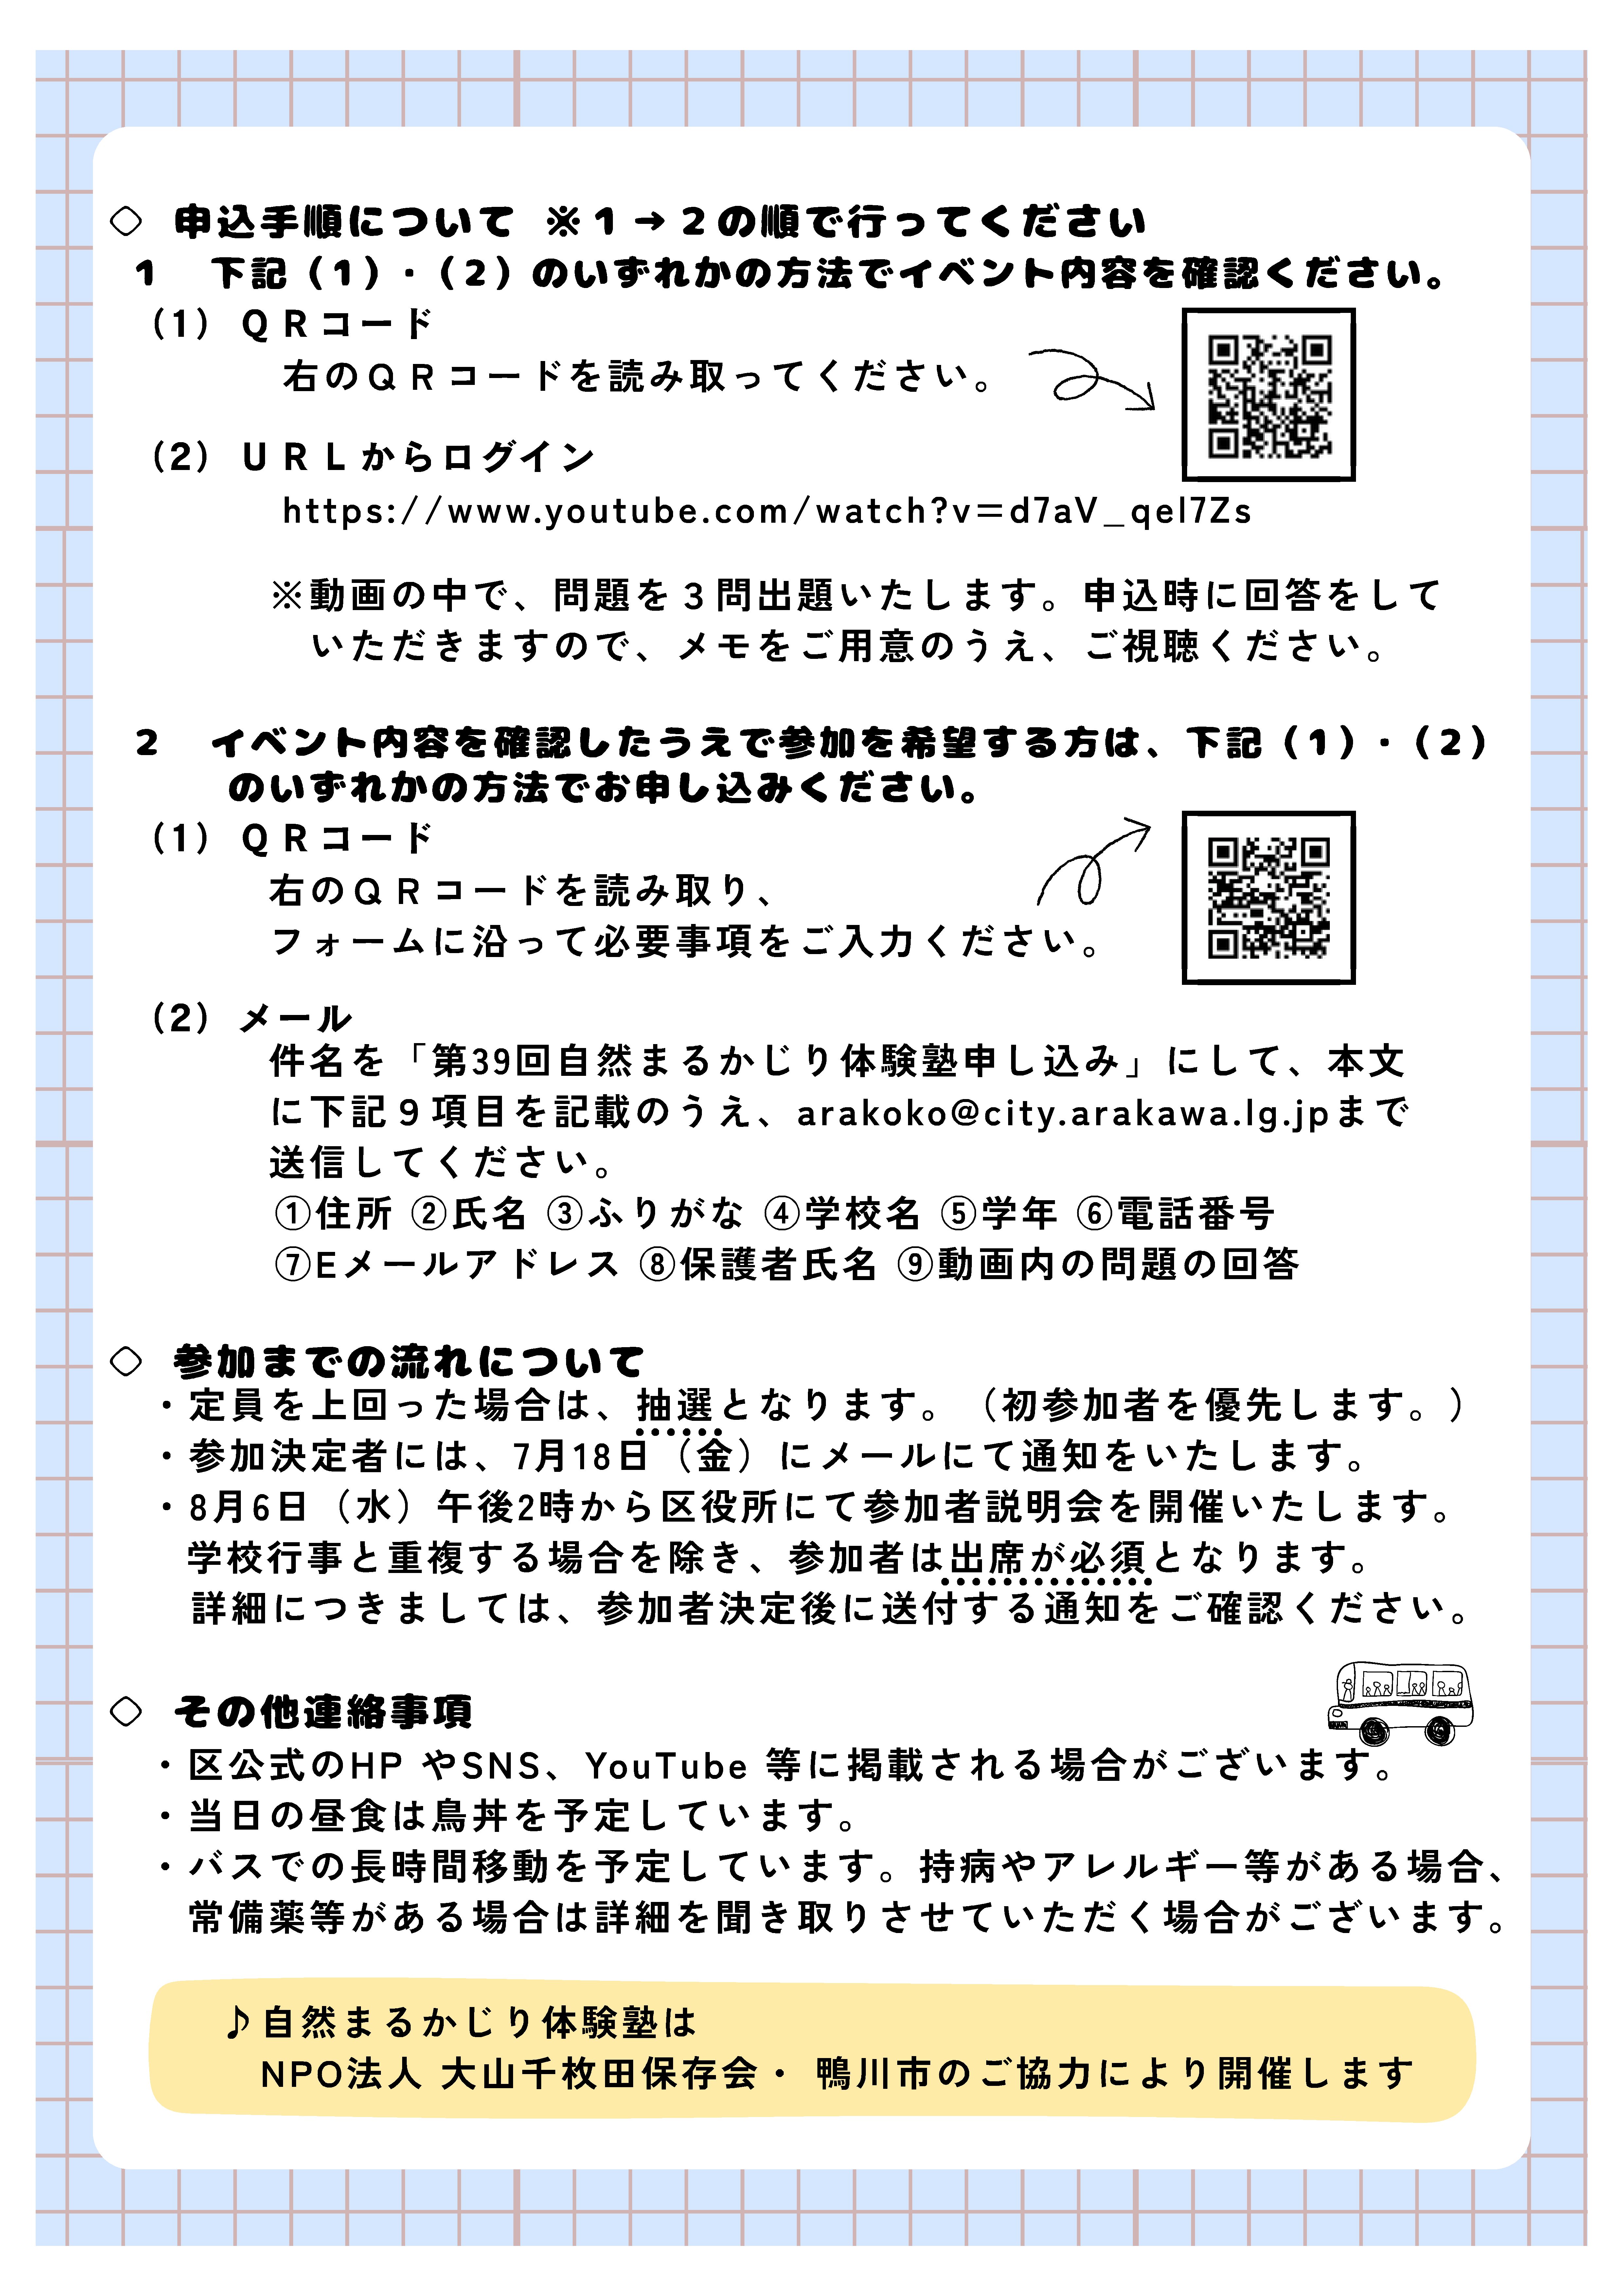 ◇ 申込手順について ※１→２の順で行ってください
１ 下記（1）・（2）のいずれかの方法でイベント内容を確認ください。
（1） ＱＲコード
右のＱＲコードを読み取ってください。
（2） ＵＲＬからログイン
https://www.youtube.com/watch?v=d7aV_qel7Zs
※動画の中で、問題を３問出題いたします。申込時に回答をして
いただきますので、メモをご用意のうえ、ご視聴ください。
２ イベント内容を確認したうえで参加を希望する方は、下記（1）・（2）
のいずれかの方法でお申し込みください。
（1） ＱＲコード
右のＱＲコードを読み取り、
フォームに沿って必要事項をご入力ください。
（2） メール
件名を「第39回自然まるかじり体験塾申し込み」にして、本文
に下記９項目を記載のうえ、arakoko@city.arakawa.lg.jpまで
送信してください。
①住所 ②氏名 ③ふりがな ④学校名 ⑤学年 ⑥電話番号
⑦Eメールアドレス ⑧保護者氏名 ⑨動画内の問題の回答
◇ 参加までの流れについて
・定員を上回った場合は、抽選となります。（初参加者を優先します。）
・参加決定者には、7月18日（金）にメールにて通知をいたします。
・8月6日（水）午後2時から区役所にて参加者説明会を開催いたします。
学校行事と重複する場合を除き、参加者は出席が必須となります。
詳細につきましては、参加者決定後に送付する通知をご確認ください。
◇ その他連絡事項
・区公式のHP やSNS、YouTube 等に掲載される場合がございます。
・当日の昼食は鳥丼を予定しています。
・バスでの長時間移動を予定しています。持病やアレルギー等がある場合、
常備薬等がある場合は詳細を聞き取りさせていただく場合がございます。
♪自然まるかじり体験塾は
NPO法人 大山千枚田保存会・ 鴨川市のご協力により開催します